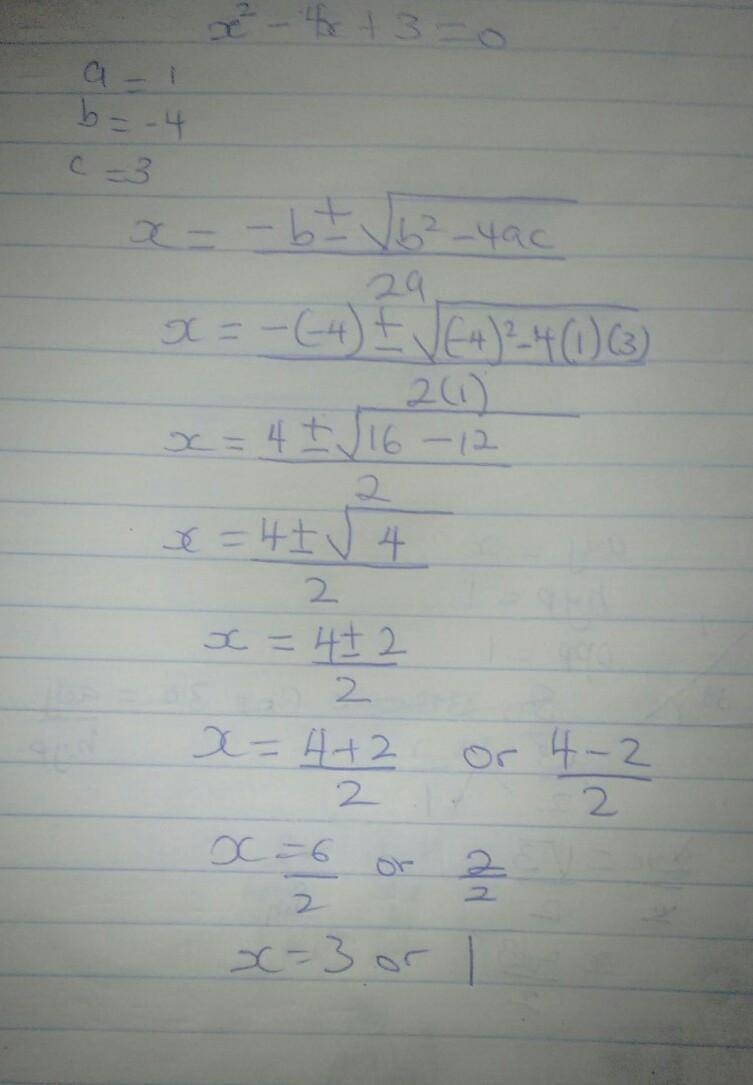 x² - 4x + 3 = 0
a = 1
b = -4
c = 3
x = -b ± √(b² - 4ac) / 2a
x = -(-4) ± √((-4)² - 4(1)(3)) / 2(1)
x = 4 ± √(16 - 12) / 2
x = 4 ± √4 / 2
x = 4 ± 2 / 2
x = 4 + 2 / 2 or 4 - 2 / 2
x = 6 / 2 or 2 / 2
x = 3 or 1